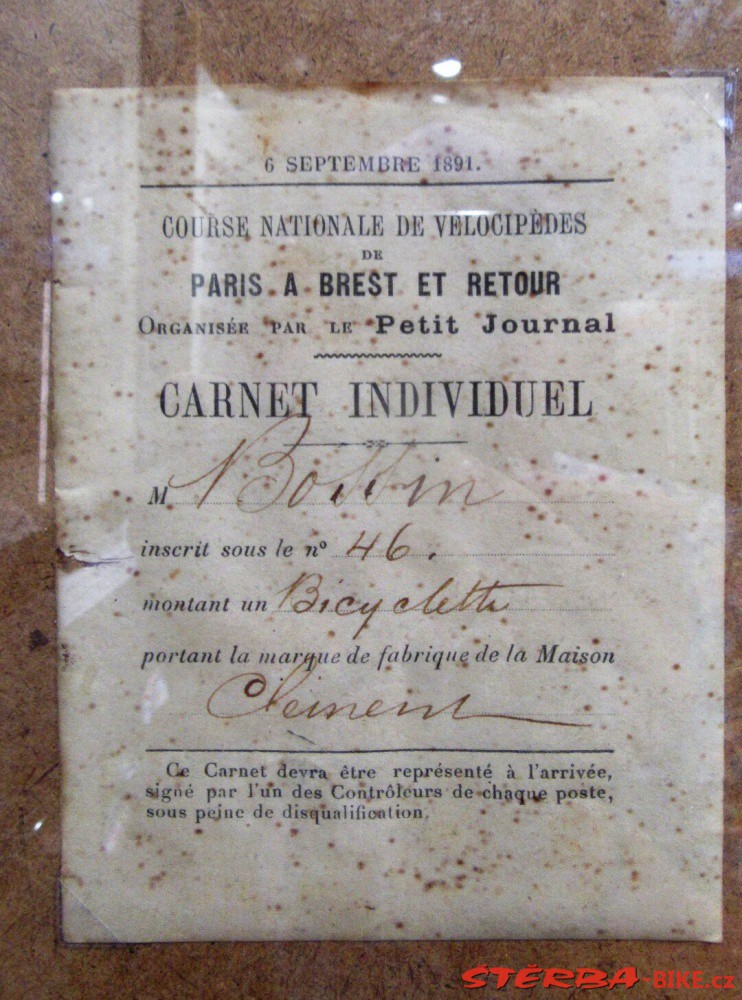 6 SEPTEMBRE 1891.
COURSE NATIONALE DE VÉLOCIPÈDES
DE
PARIS A BREST ET RETOUR
ORGANISÉE PAR LE Petit Journal
CARNET INDIVIDUEL
M Bossin
inscrit sous le nº 46.
montant un Bicyclette
portant la marque de fabrique de la Maison
Clément
Ce Carnet devra être représenté à l'arrivée,
signé par l'un des Contrôleurs de chaque poste,
sous peine de disqualification.
ŠTĚRBA-BIKE.cz